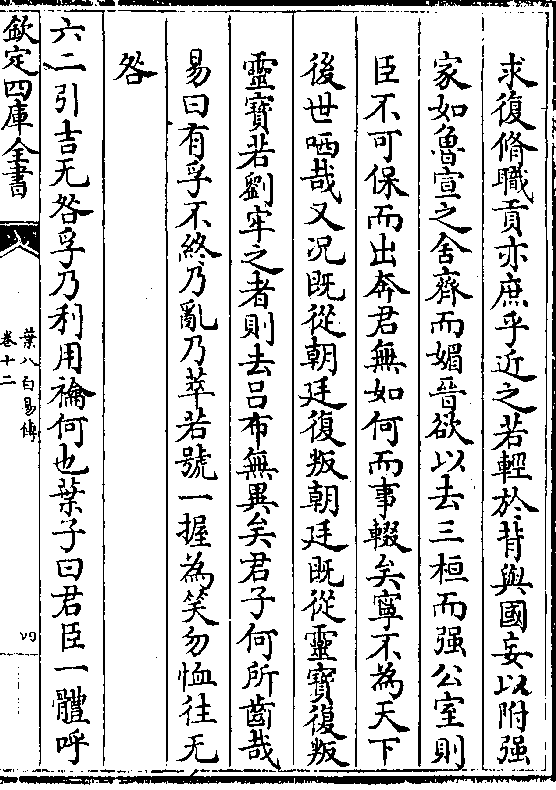 求復脩職貢亦庶乎近之若輕於背與國妄以附强
家如魯宣之舍齊而媚晉欲以去三桓而强公室則
臣不可保而出奔君無如何而事輟矣寧不為天下
後世哂哉又况既從朝廷復叛朝廷既從靈寶復叛
靈寶若劉牢之者則去吕布無異矣君子何所齒哉
易曰有孚不終乃亂乃萃若號一握為笑勿恤往无
咎
六二引吉无咎孚乃利用禴何也葉子曰君臣一體呼
欽定四庫全書
葉八白易傳
卷十二
四